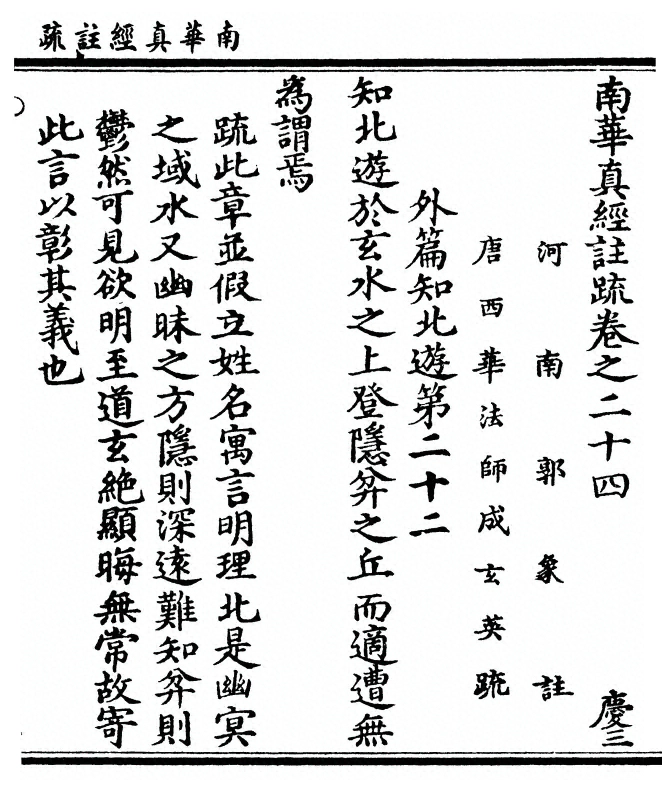 南華真經註疏
南華真經註疏卷之二十四　慶三
河南郭象註
唐西華法師成玄英疏
外篇知北遊第二十二
知北遊於玄水之上登隱弅之丘而適遭無
為謂焉
疏此章並假立姓名寓言明理北是幽冥
之域水又幽昧之方隱則深遠難知弅則
鬱然可見欲明至道玄絶顯晦無常故寄
此言以彰其義也